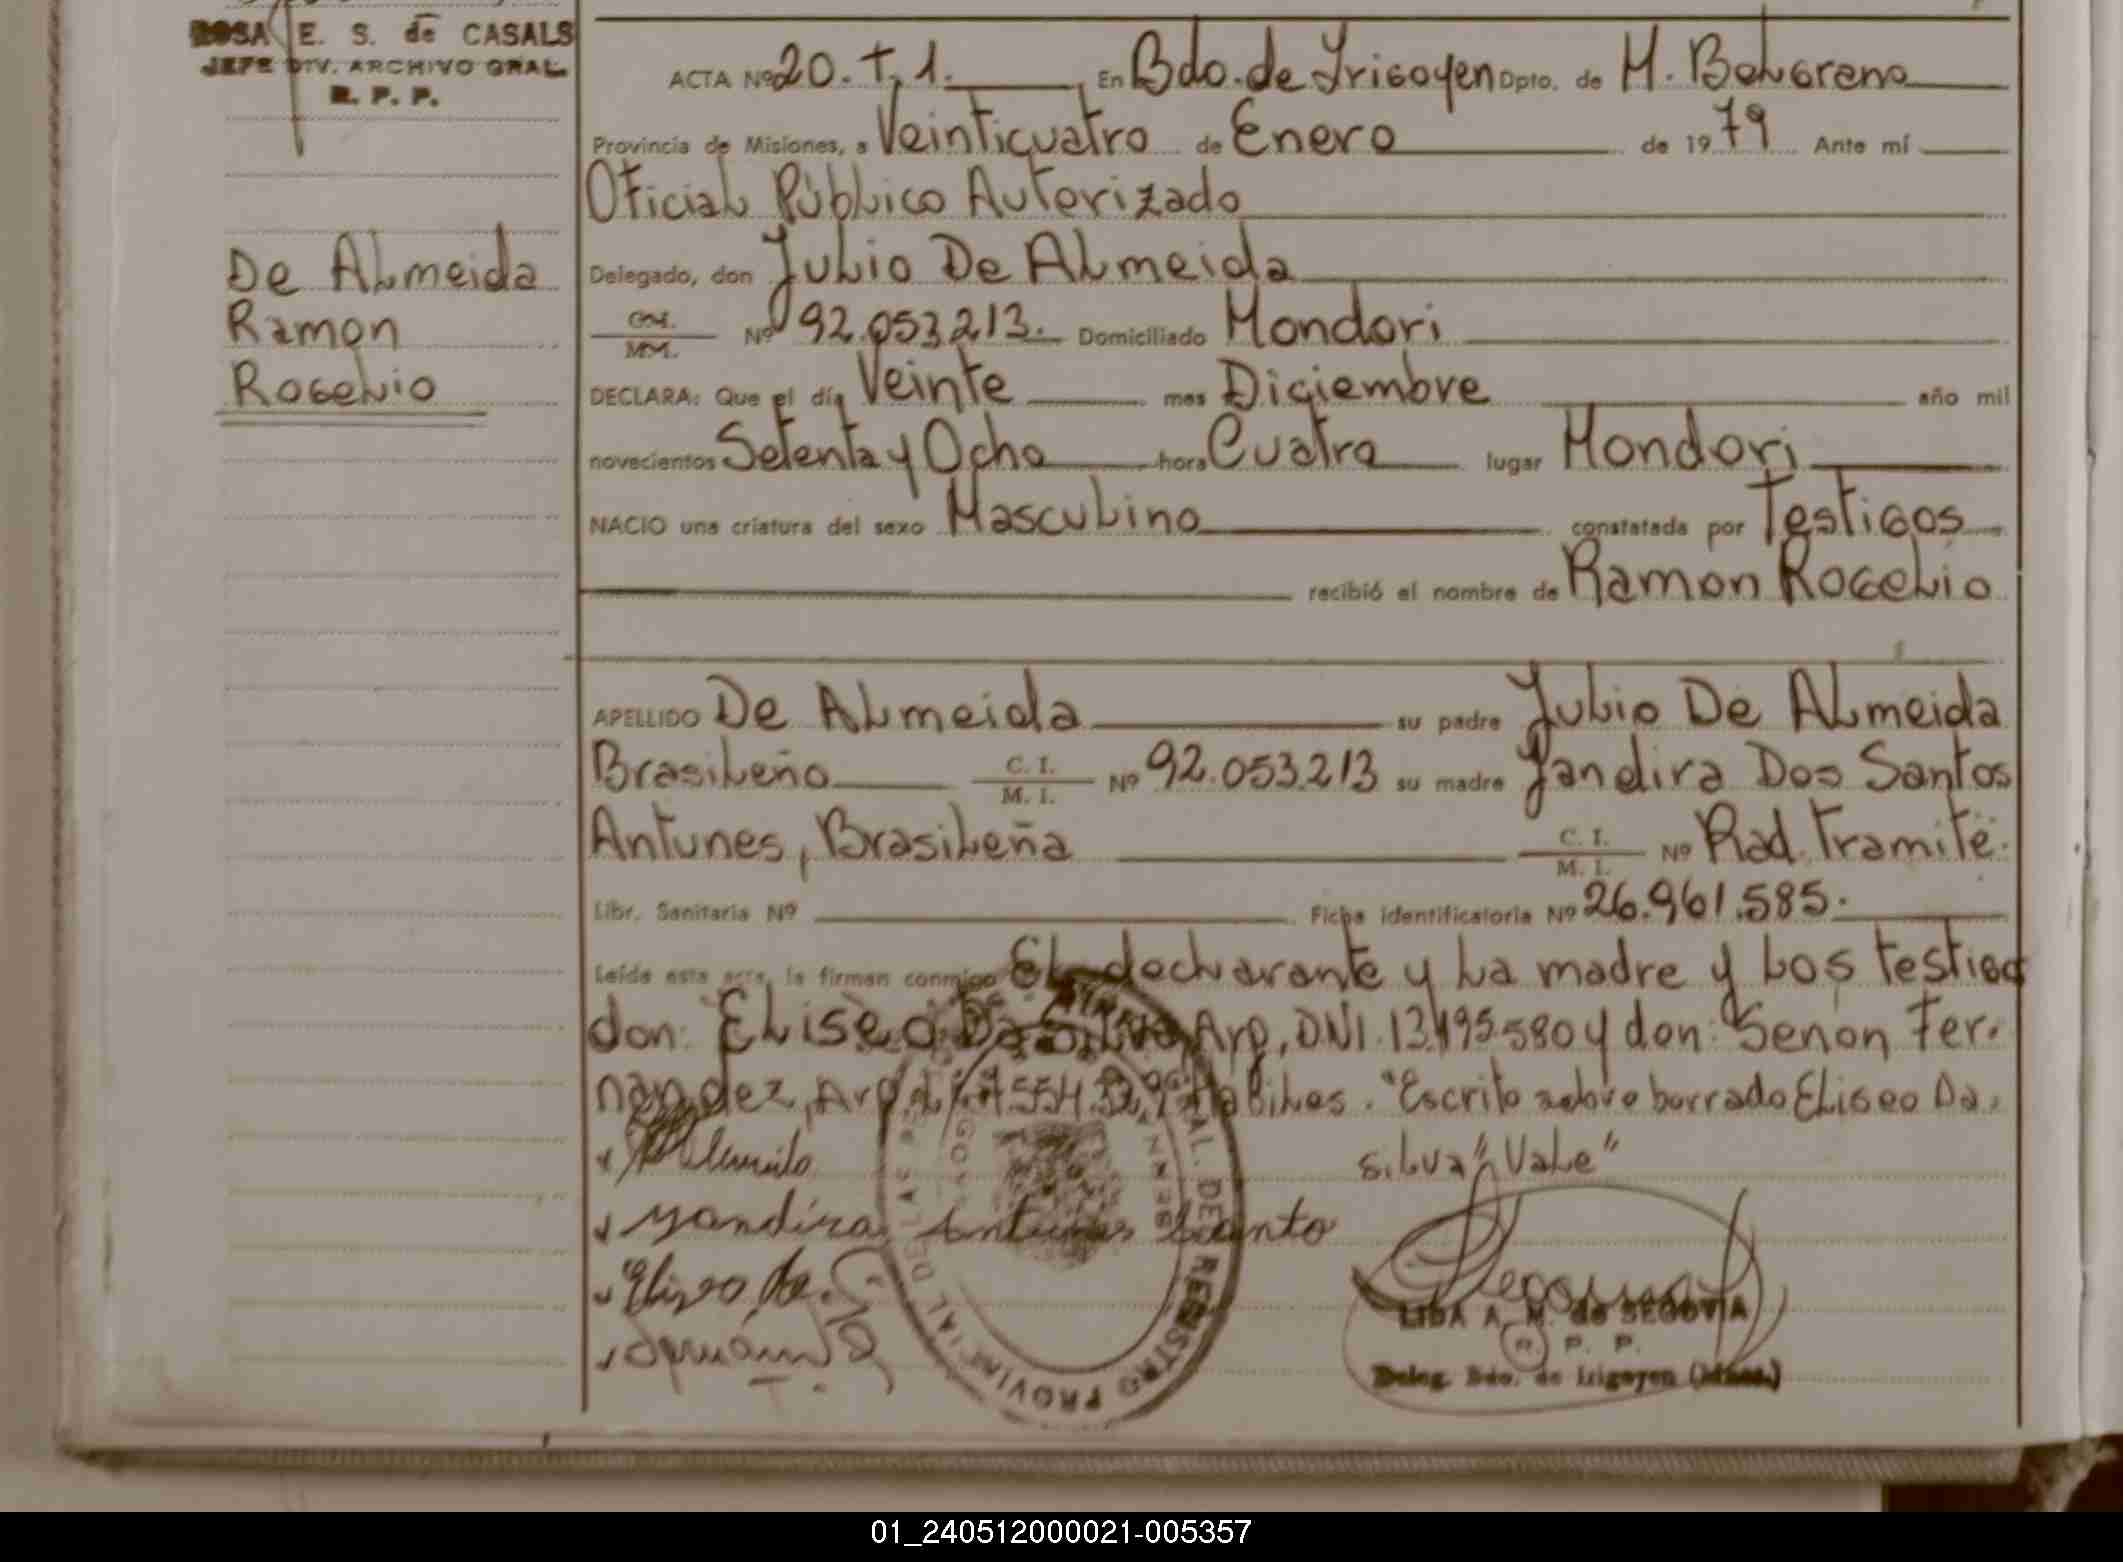 ROSA E. S. de CASALS
JEFE DIV. ARCHIVO GRAL.
R. P. P.
De Almeida
Ramon
Rogelio
ACTA Nº 20. T. 1. En Bdo. de Yrigoyen Dpto. de M. Belgrano
Provincia de Misiones, a Veinticuatro de Enero de 1979 Ante mí
Oficial Público Autorizado
Delegado, don Julio De Almeida
MM. Nº 92.053.213. Domiciliado Mondori
DECLARA: Que el día Veinte mes Diciembre año mil
novecientos Setenta y Ocho hora Cuatro lugar Mondori
NACIO una criatura del sexo Masculino constatada por Testigos
recibió el nombre de Ramon Rogelio
APELLIDO De Almeida su padre Julio De Almeida
Brasileño C. I. M. I. Nº 92.053.213 su madre Jandira Dos Santos
Antunes, Brasileña C. I. M. I. Nº Rad. Tramite.
Libr. Sanitaria Nº Ficha identificatoria Nº 26.961.585.
Leída esta acta, la firman conmigo El declarante y la madre y los testigos
don: Eliseo Da Silva, Arg, DNI. 13.195.580 y don: Senon Fer-
nandez, Arg. 554.329 Habiles. "Escrito sobre borrado Eliseo Da
Silva" Vale"
Yandira Antunes Santo
Eliseo da
LIDA A. M. de SEGOVIA
R. P. P.
Deleg. Bdo. de Irigoyen (Mnes.)
REGISTRO PROVINCIAL DE LAS
01_240512000021-005357